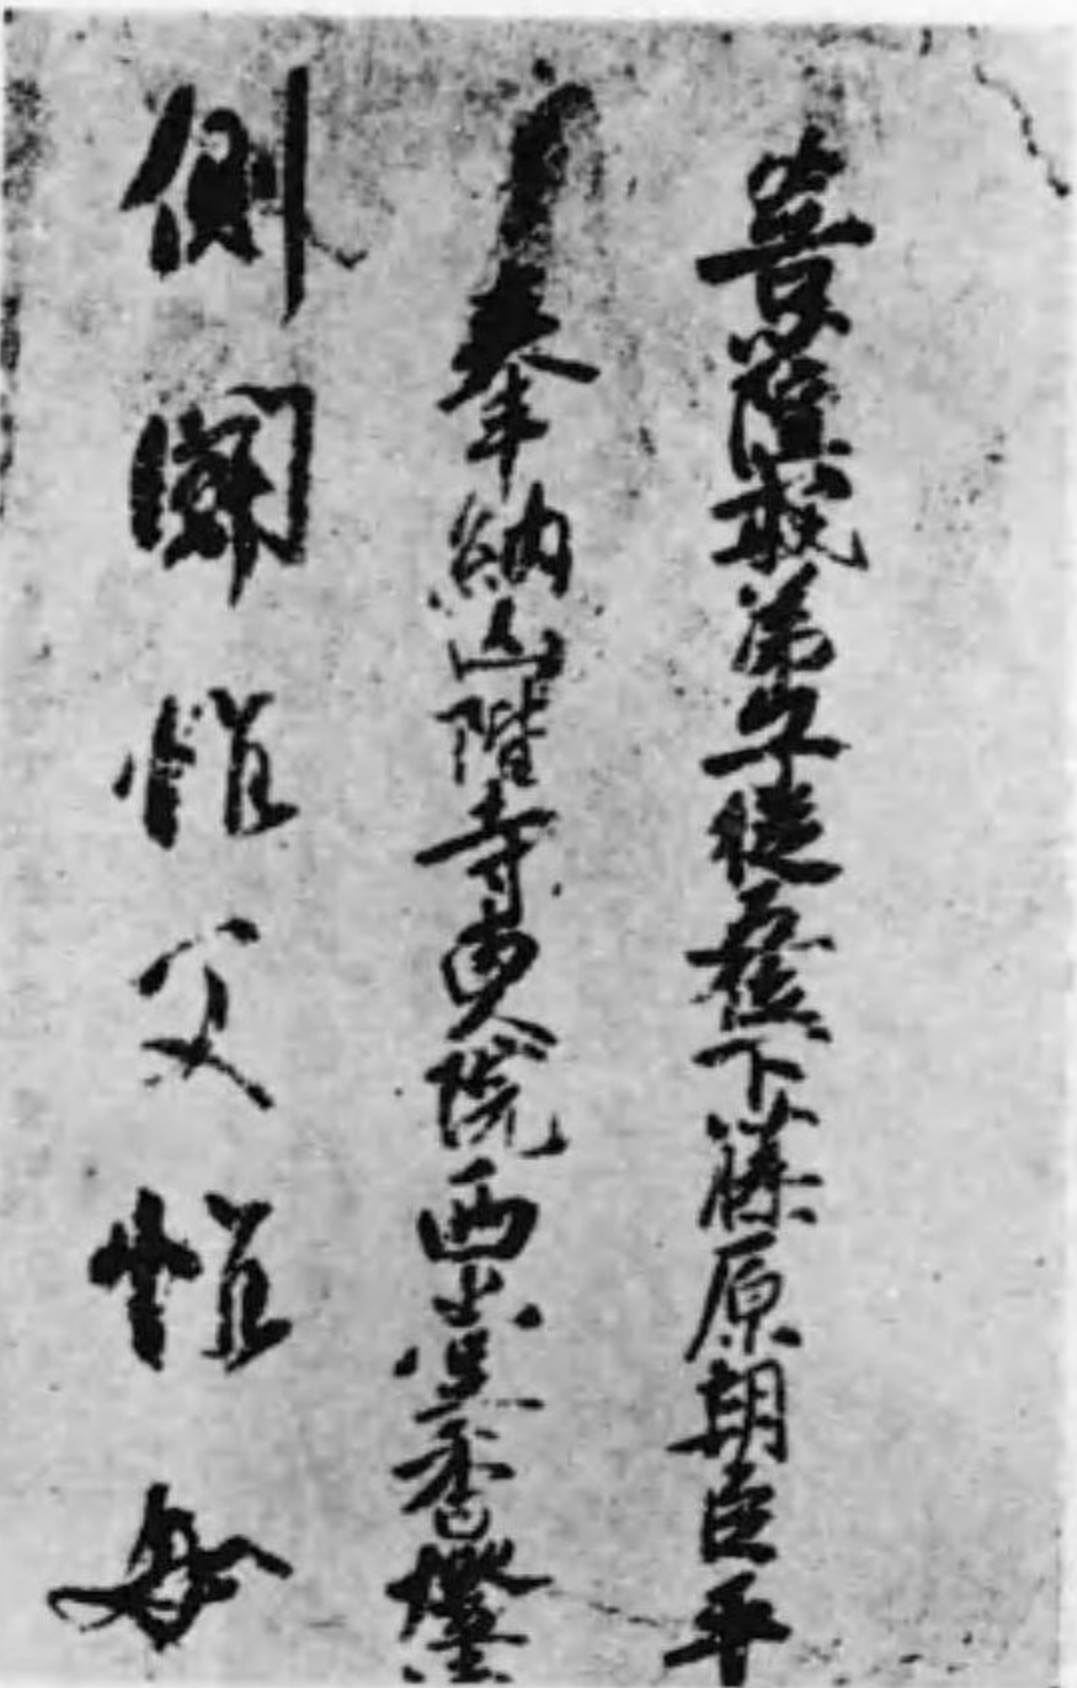 菩薩戒弟子従五位下藤原朝臣平
子奉納山階寺東院西堂香燈
側聞惟父惟母